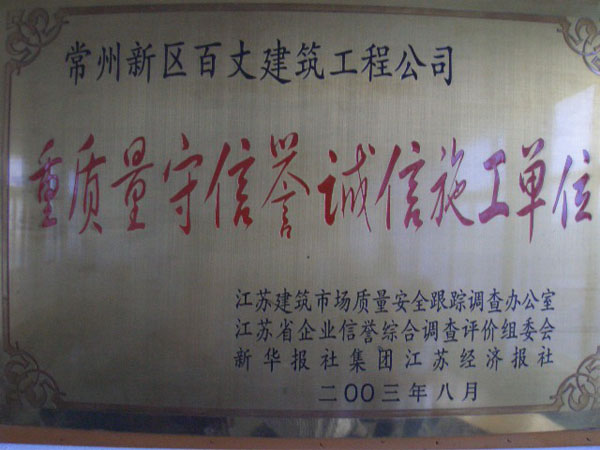 常州新区百丈建筑工程公司
重质量守信誉诚信施工单位
江苏建筑市场质量安全跟踪调查办公室
江苏省企业信誉综合调查评价组委会
新华报社集团江苏经济报社
二〇〇三年八月